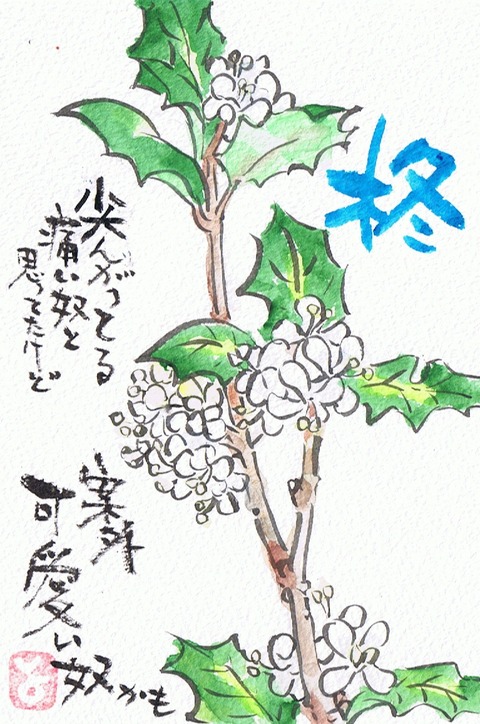 柊
尖んがってる
痛い奴と
思ってたけど
案外
可愛い奴かも